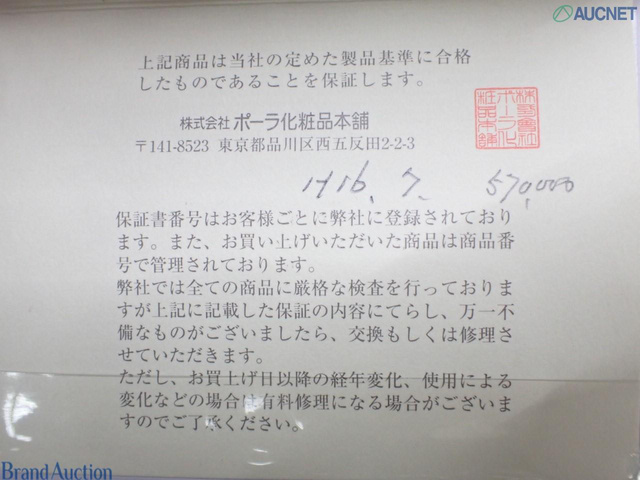 AUCNET
上記商品は当社の定めた製品基準に合格
したものであることを保証します。
株式会社 ポーラ化粧品本舗
〒141-8523 東京都品川区西五反田2-2-3
株式會社
ポーラ化
粧品本舗
H16. 7. 570,000
保証書番号はお客様ごとに弊社に登録されており
ます。また、お買い上げいただいた商品は商品番
号で管理されております。
弊社では全ての商品に厳格な検査を行っておりま
すが上記に記載した保証の内容にてらし、万一不
備なものがございましたら、交換もしくは修理さ
せていただきます。
ただし、お買上げ日以降の経年変化、使用による
変化などの場合は有料修理になる場合がございま
すのでご了承ください。
Brand Auction